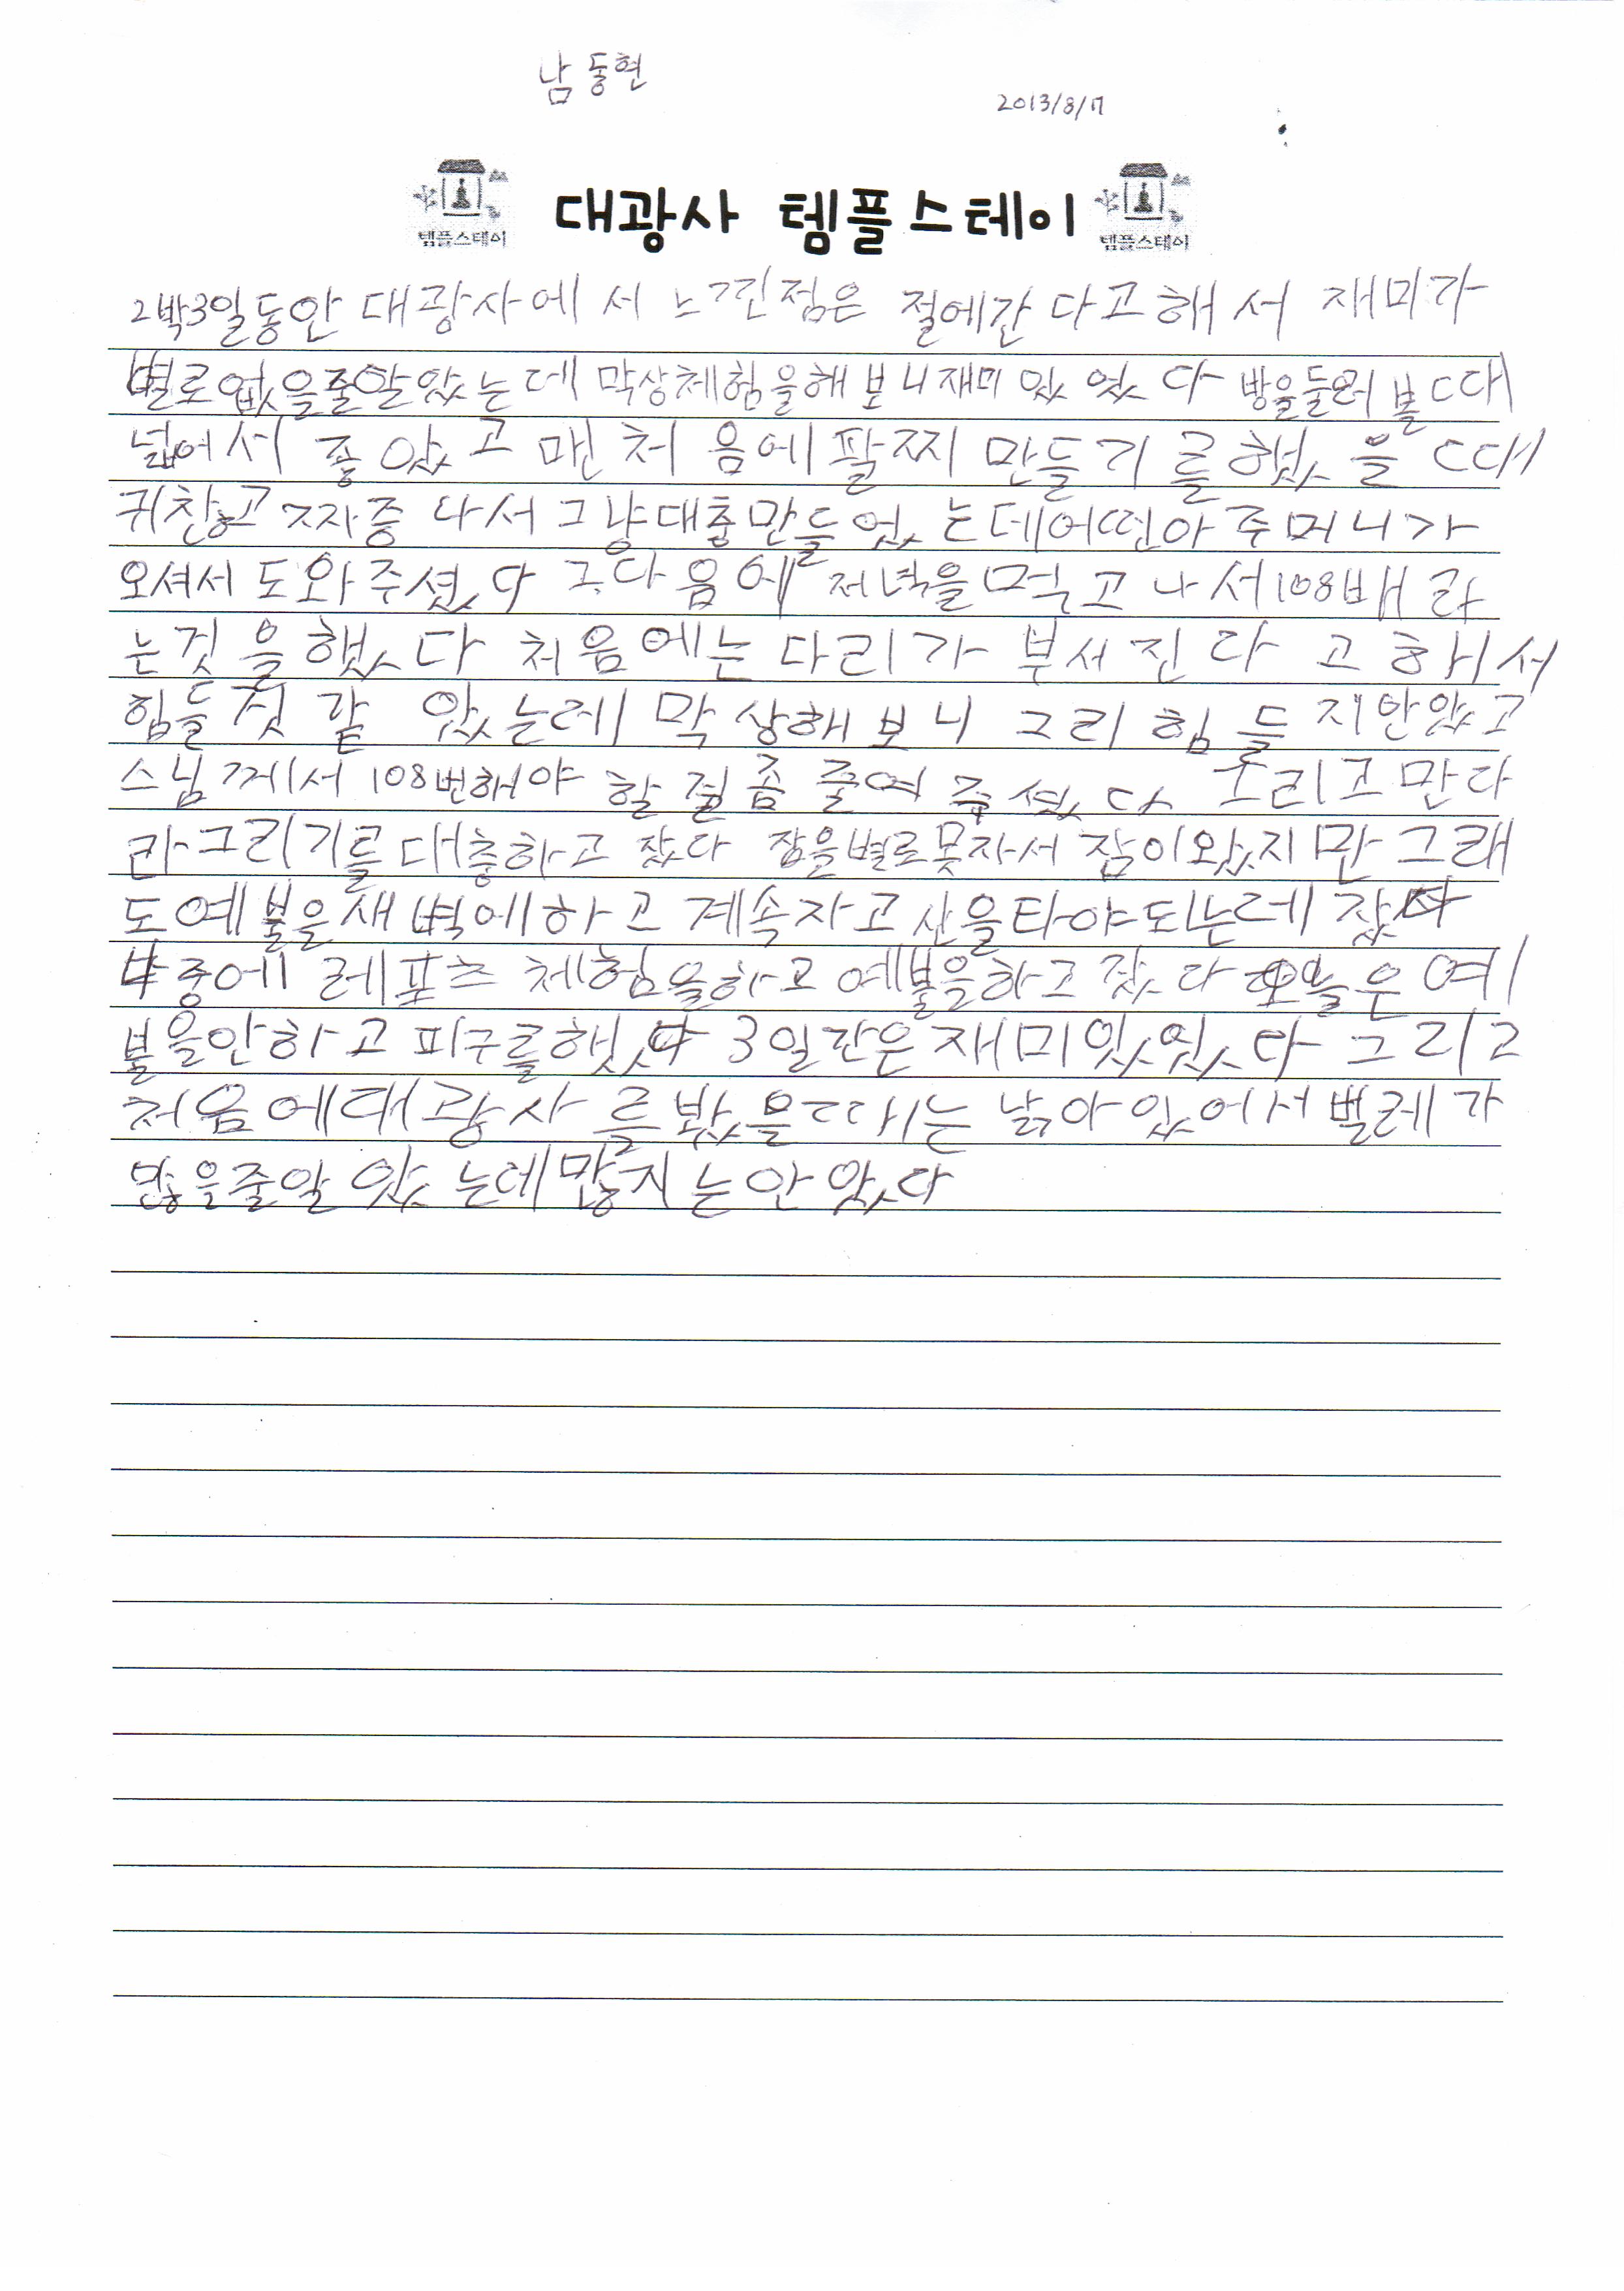 남동현
2013/8/17
템플스테이 대광사 템플스테이 템플스테이
2박3일동안 대광사에서 느낀점은 절에간다고해서 재미가
별로없을줄알았는데 막상체험을해보니재미있었다 방을둘러볼때
넓어서 좋았고 맨처음에팔찌만들기를했을때
귀찮고 짜증나서 그냥대충만들었는데어떤아주머니가
오셔서 도와주셨다 그다음에 저녁을먹고나서108배라
는것을했다 처음에는다리가 부서진다고해서
힘들것같았는데 막상해보니 그리힘들지안았고
스님께서 108번해야할절좀 줄여주셨다 그리고만다
라그리기를대충하고 잤다 잠을별로못자서 잠이왔지만그래
도예불을새벽에하고계속자고산을타야되는데 잤다
나중에 레포츠 체험을하고예불을하고잤다 오늘은예
불을안하고피구를했다 3일간은재미있었다 그리고
처음에대광사를봤을때는낡아있어서벌레가
많을줄알았는데많지는안았다